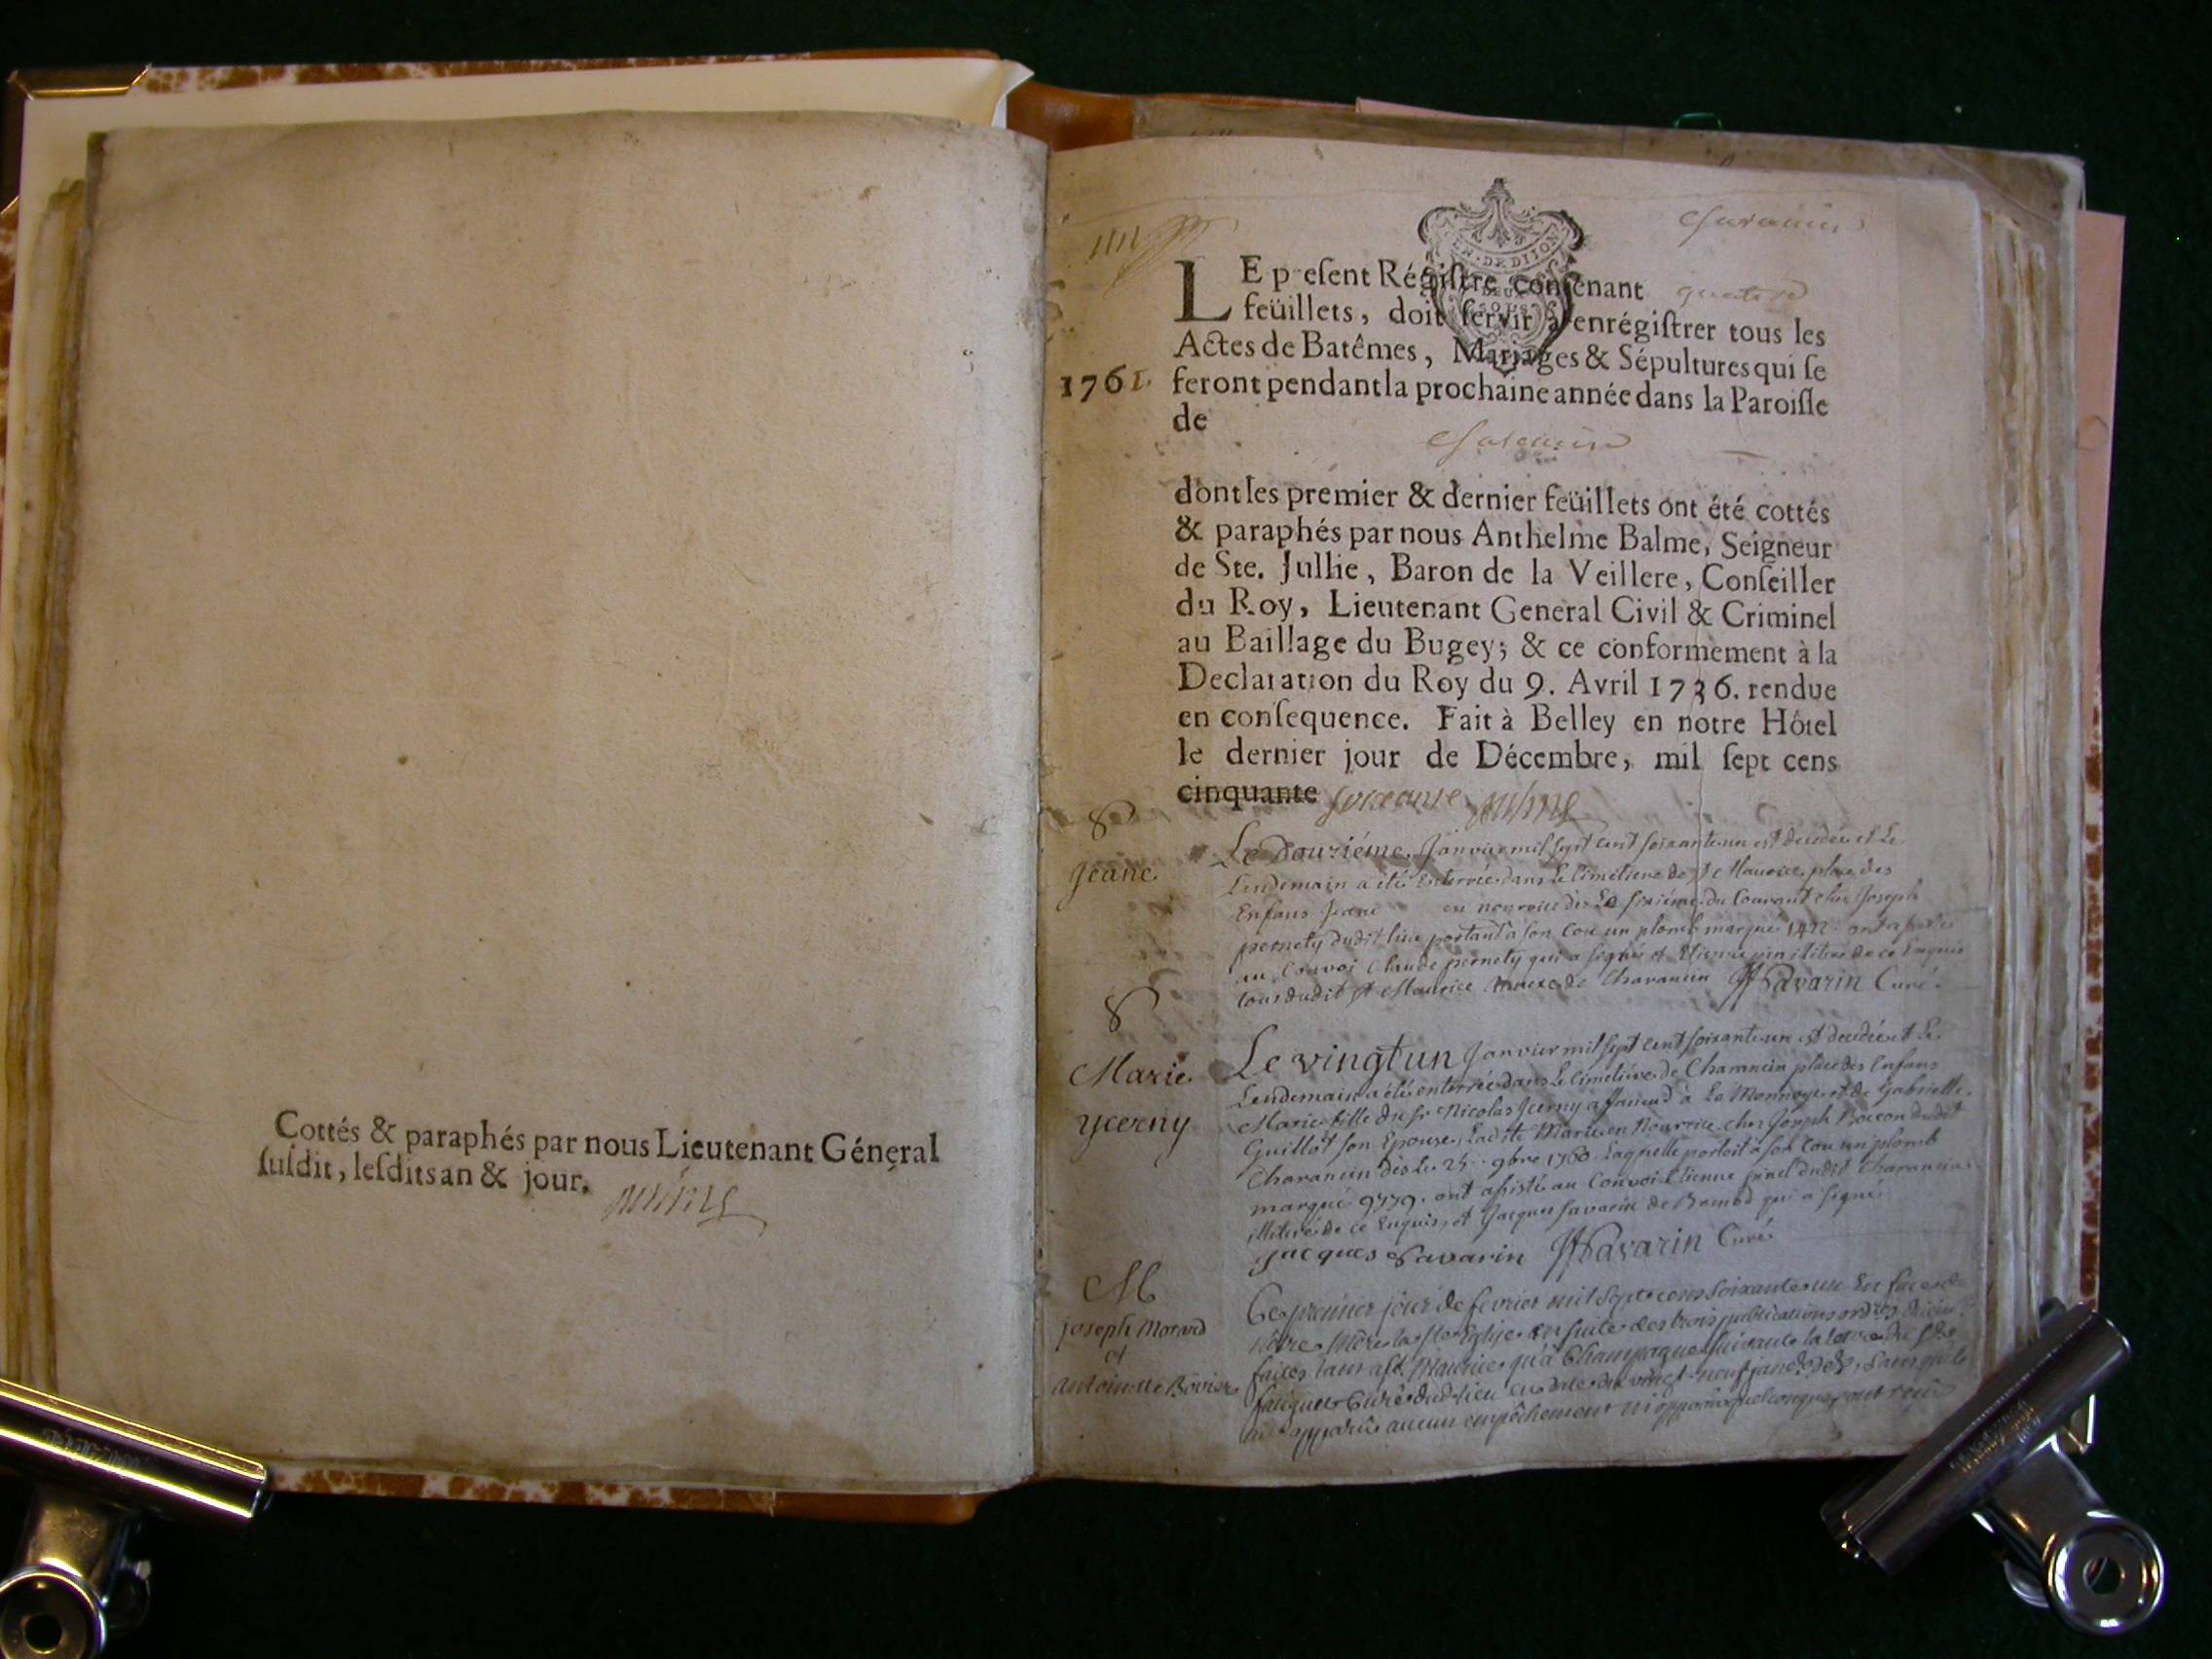 Cottés & paraphés par nous Lieutenant Géneral
susdit, lesdits an & jour.
Charancin
GEN. DE DIJON
DEUX
SOLS
LE present Régistre contenant
feüillets, doit servir à enrégistrer tous les
Actes de Batêmes, Mariages & Sépultures qui se
1761. feront pendant la prochaine année dans la Paroisse
de
Charancin
dont les premier & dernier feüillets ont été cottés
& paraphés par nous Anthelme Balme, Seigneur
de Ste. Jullie, Baron de la Veillere, Conseiller
du Roy, Lieutenant General Civil & Criminel
au Baillage du Bugey; & ce conformèment à la
Declaration du Roy du 9. Avril 1736. rendue
en consequence. Fait à Belley en notre Hôtel
le dernier jour de Décembre, mil sept cens
cinquante soixante
S
Jeane
Le Douziéme Janvier mil sept cent soixante un est decedée et Le
Lendemain a été Enterrée dans Le Cimetiere de St Maurice place des
Enfans Jeane en nourrice dès Le sixiéme du Courant chés Joseph
pernety dudit lieu portant à son Cou un plomb marqué
au Convoi Claude pernety qui a signé et Etienne illitiré de ce Enquis
tous dudit St Maurice annexe de Charancin Savarin Curé
S
Marie
ycerny
Le vingt un Janvier mil sept cent soixante un est decedée et Le
Lendemain a été enterrée dans Le Cimetiére de Charancin place des Enfans
Marie fille du Sr Nicolas ycerny à La Monnoye et de Gabrielle
Guillot son Epouse, Ladite Marie en Nourrice chés Joseph dudit
Charancin dès Le 25 9bre 1760 Laquelle portoit à son Cou un plomb
marqué ont assisté au Convoi Etienne pinel dudit Charancin
illitiré de ce Enquis, et Jacques Savarin de qui a signé
Jacques Savarin Savarin Curé
M
joseph Morard
et
antoinette Bovier
Ce premier jour de fevrier mil sept cens soixante un En face de
Nôtre Mère la Ste Eglise En suite des trois publications
faites tant a St Maurice qu'à Champagne suivante la lettre du Sr
Curé dud lieu en date du vingt neuf sans qu'il
apparû aucun empêchement ni opposition quelconque, ont reçu